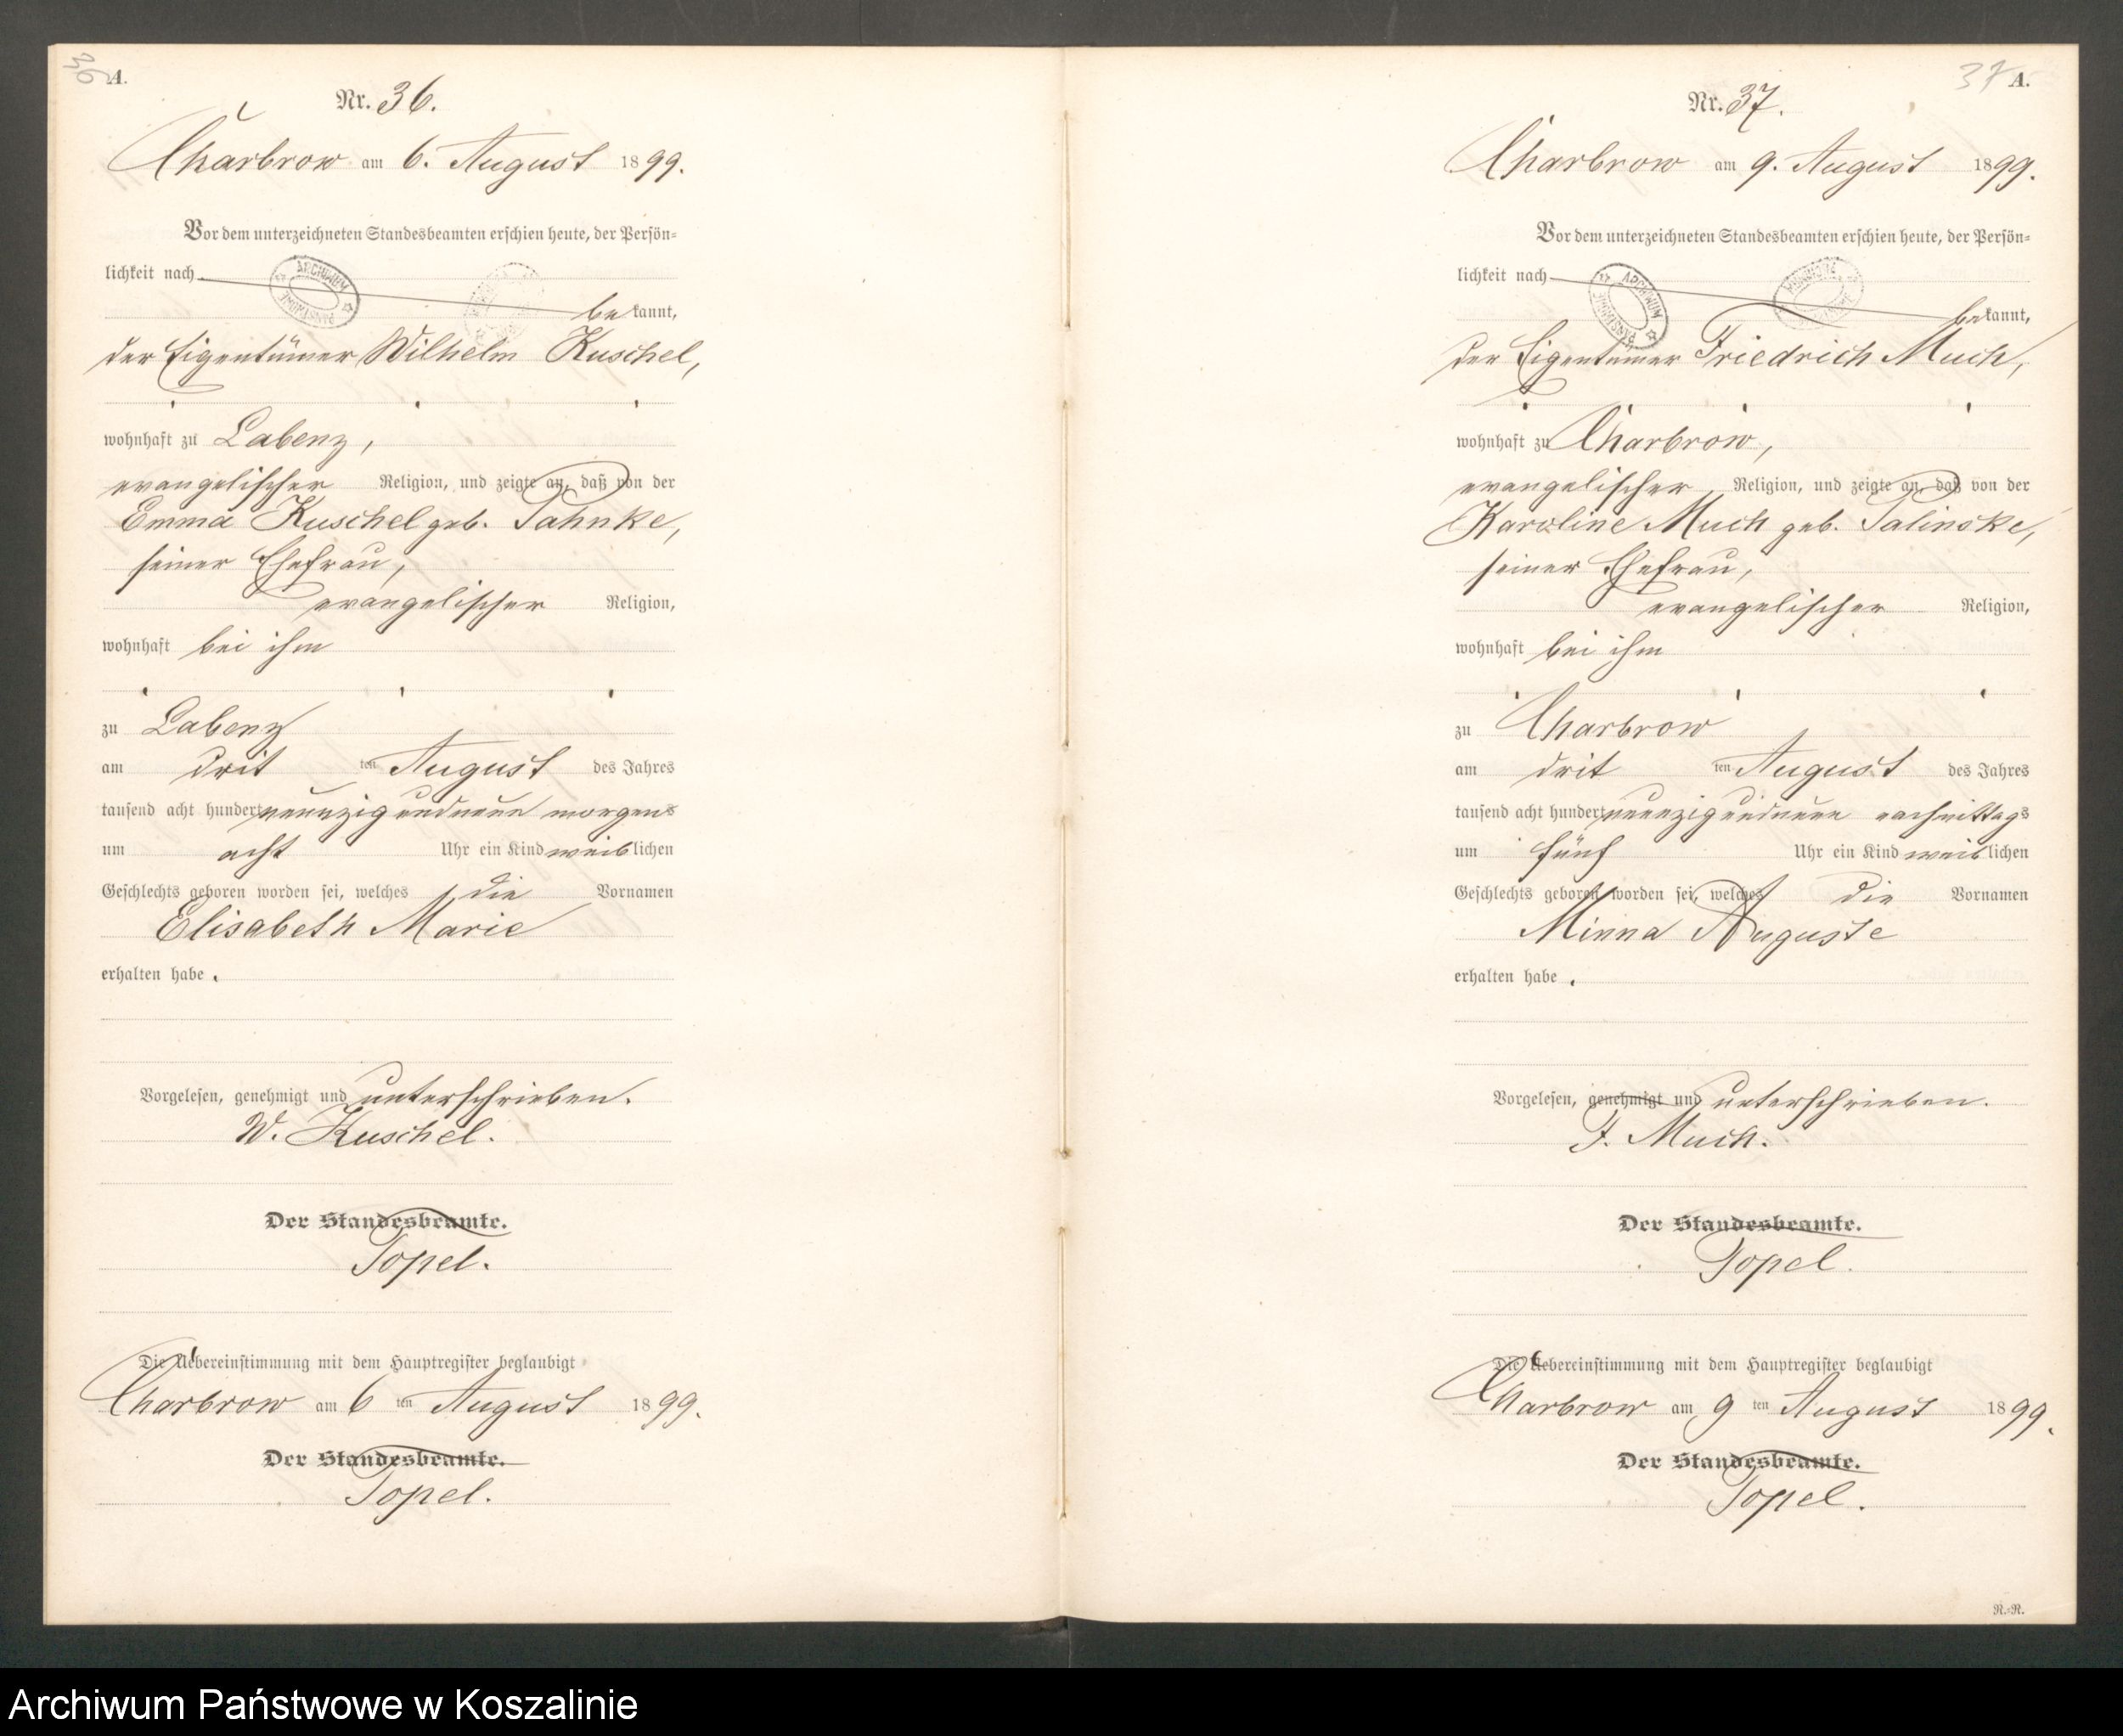 36
A.
Nr. 36.
Charbrow am 6. August 1899.
Vor dem unterzeichneten Standesbeamten erschien heute, der Persön-
lichkeit nach
bekannt,
der Eigentümer Wilhelm Kuschel,
wohnhaft zu Labenz,
evangelischer Religion, und zeigte an, daß von der
Emma Kuschel geb. Pahnke,
seiner Ehefrau,
evangelischer Religion,
wohnhaft bei ihm
zu Labenz
am drit ten August des Jahres
tausend acht hundert neunzig und neun morgens
um acht Uhr ein Kind weiblichen
Geschlechts geboren worden sei, welches die Vornamen
Elisabeth Marie
erhalten habe.
Vorgelesen, genehmigt und unterschrieben.
W. Kuschel.
Der Standesbeamte.
Topel.
Die Uebereinstimmung mit dem Hauptregister beglaubigt
Charbrow am 6 ten August 1899.
Der Standesbeamte.
Topel.
37
A.
Nr. 37.
Charbrow am 9. August 1899.
Vor dem unterzeichneten Standesbeamten erschien heute, der Persön-
lichkeit nach
bekannt,
der Eigentümer Friedrich Much,
wohnhaft zu Charbrow,
evangelischer Religion, und zeigte an, daß von der
Karoline Much geb. Palinske,
seiner Ehefrau,
evangelischer Religion,
wohnhaft bei ihm
zu Charbrow
am drit ten August des Jahres
tausend acht hundert neunzig und neun nachmittags
um fünf Uhr ein Kind weiblichen
Geschlechts geboren worden sei, welches die Vornamen
Minna Auguste
erhalten habe.
Vorgelesen, genehmigt und unterschrieben.
F. Much.
Der Standesbeamte.
Topel.
Die Uebereinstimmung mit dem Hauptregister beglaubigt
Charbrow am 9 ten August 1899.
Der Standesbeamte.
Topel.
R.-R.
ARCHIWUM PAŃSTWOWE
ARCHIWUM PAŃSTWOWE
Archiwum Państwowe w Koszalinie